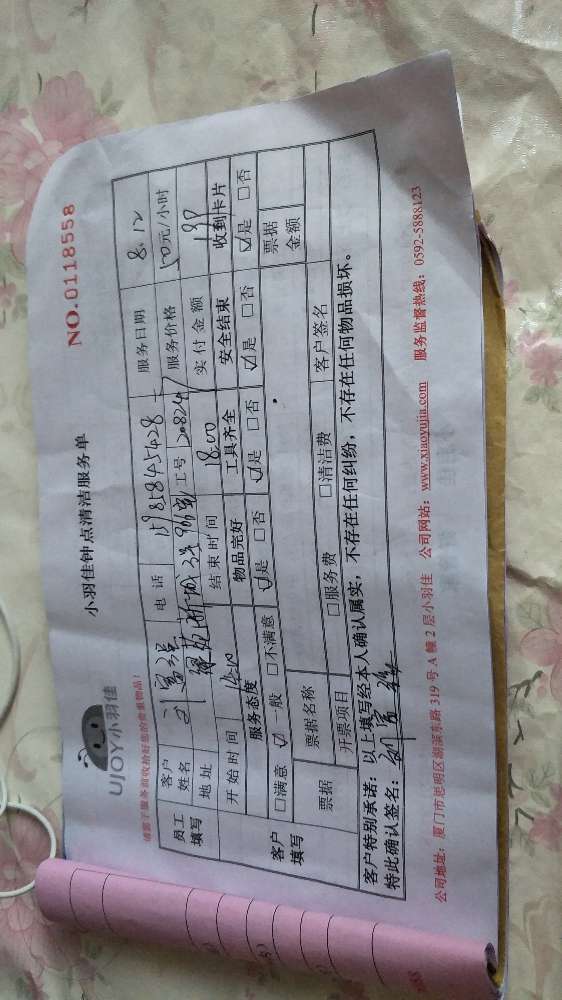 UJOY小羽佳
小羽佳钟点清洁服务单
NO.0118558
请置于服务前收拾好您的贵重物品!
员工填写
客户姓名 刘富强 电话 15985845428 服务日期 8.12
地址 新城 工号 服务价格 元/小时
开始时间 结束时间 18:00 实付金额
客户填写
服务态度 物品完好 工具齐全 安全结束 收到卡片
□满意 ☑一般 □不满意 ☑是 □否 ☑是 □否 ☑是 □否 ☑是 □否
票据 票据名称 客户签名 票据金额
开票项目 □服务费 □清洁费
客户特别承诺:以上填写经本人确认属实,不存在任何纠纷,不存在任何物品损坏。
特此确认签名:刘富强
公司地址:厦门市思明区湖滨东路319号A幢2层小羽佳 公司网站:www.xiaoyujia.com 服务监督热线:0592-5888123